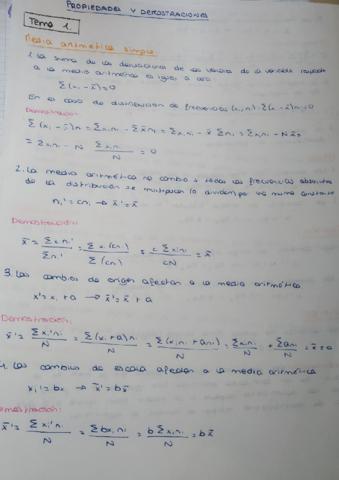 PROPIEDADES Y DEMOSTRACIONES
Tema 1.
Media aritmética simple:
1. La suma de las desviaciones de los valores de la variable respecto
a la media aritmética es igual a cero
Σ(xi - x̄)=0
En el caso de distribución de frecuencias (xi, ni): Σ(xi - x̄)ni=0
Demostración:
Σ(xi - x̄)ni = Σxini - Σx̄ni = Σxini - x̄ Σni = Σxini - Nx̄ =
= Σxini - N Σxini/N = 0
2. La media aritmética no cambia si todas las frecuencias absolutas
de la distribución se multiplican (o dividen) por un número constante
ni' = cni → x̄' = x̄
Demostración:
x̄' = Σxini'/Σni' = Σxi(cni)/Σ(cni) = cΣxini/cN = x̄
3. Los cambios de origen afectan a la media aritmética
xi' = xi + a → x̄' = x̄ + a
Demostración:
x̄' = Σxi'ni/N = Σ(xi + a)ni/N = Σ(xini + ani)/N = Σxini/N + Σani/N = x̄ + a
4. Los cambios de escala afectan a la media aritmética
xi' = bxi → x̄' = bx̄
emostración:
x̄' = Σxi'ni/N = Σbxini/N = bΣxini/N = bx̄